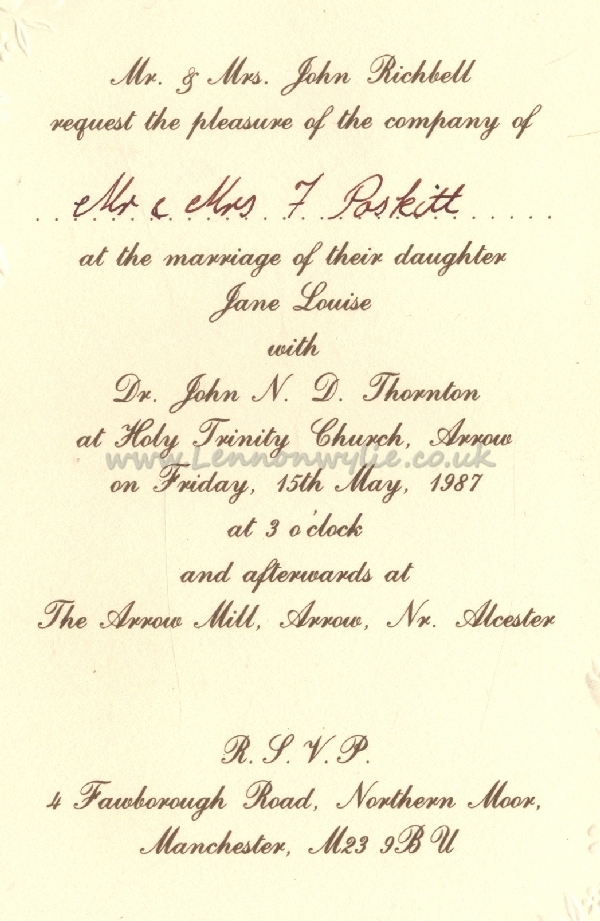 Mr. & Mrs. John Richbell
request the pleasure of the company of
Mr & Mrs F Poskitt
at the marriage of their daughter
Jane Louise
with
Dr. John N. D. Thornton
at Holy Trinity Church, Arrow
www.Lennonwylie.co.uk
on Friday, 15th May, 1987
at 3 o'clock
and afterwards at
The Arrow Mill, Arrow, Nr. Alcester
R.S.V.P.
4 Fawborough Road, Northern Moor,
Manchester, M23 9BU